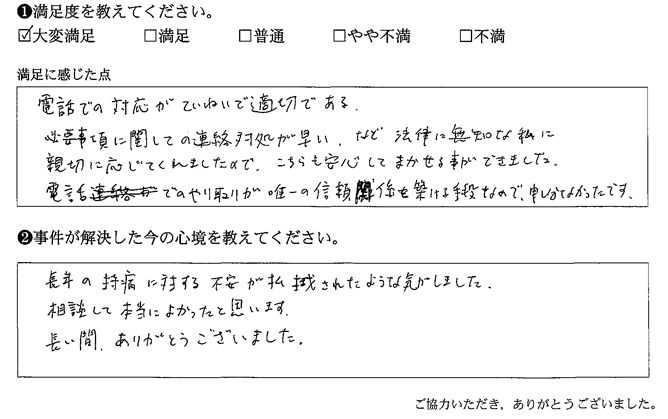 ❶満足度を教えてください。
☑大変満足 □満足 □普通 □やや不満 □不満
満足に感じた点
電話での対応がていねいで適切である.
必要事項に関しての連絡対処が早い、など 法律に無知な私に
親切に応じてくれましたので、こちらも安心してまかせる事ができました。
電話でのやり取りが唯一の信頼関係を築ける手段なので、申し分なかったです、
❷事件が解決した今の心境を教えてください。
長年の持病に対する不安が払拭されたような気がしました、
相談して本当によかったと思います.
長い間、ありがとうございました。
ご協力いただき，ありがとうございました。